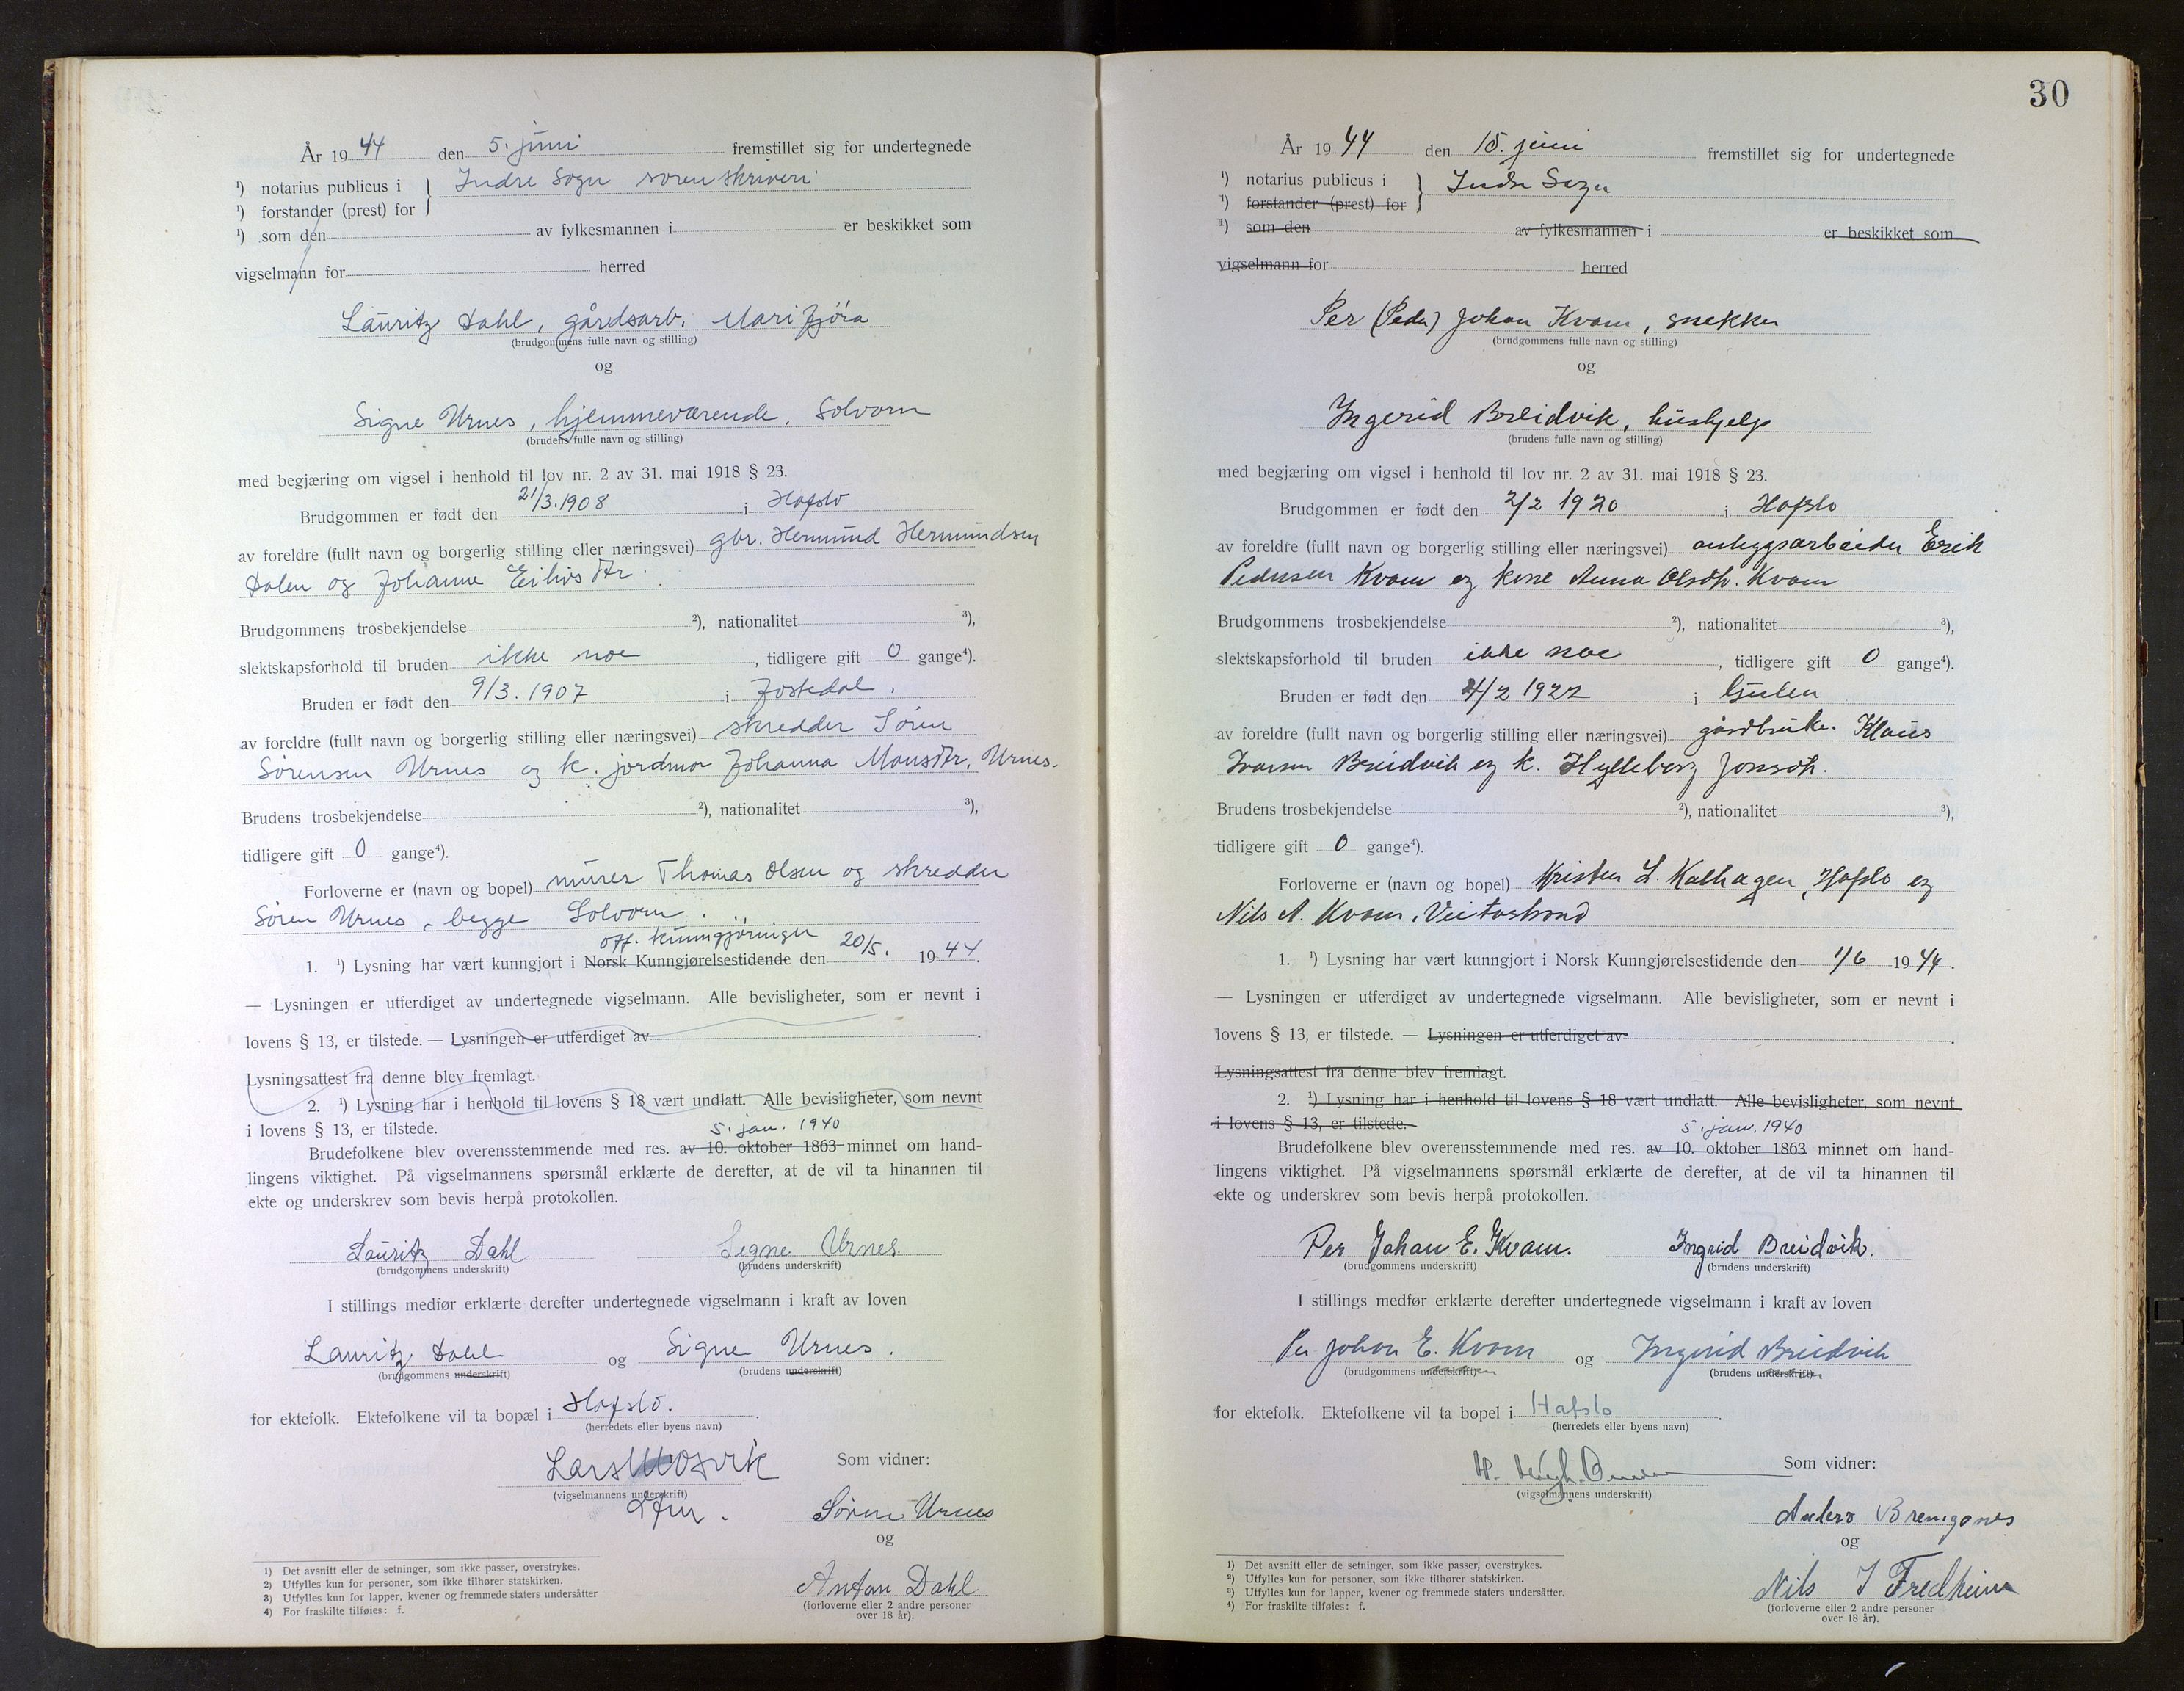 År 1944 den 5. juni fremstillet sig for undertegnede
¹) notarius publicus i } Indre Sogn sorenskriveri
¹) forstander (prest) for
¹) som den av fylkesmannen i er beskikket som
vigselmann for herred
Lauritz Dahl, gårdsarb. Marifjöra
(brudgommens fulle navn og stilling)
og
Signe Urnes, hjemmeværende, Solvorn
(brudens fulle navn og stilling)
med begjæring om vigsel i henhold til lov nr. 2 av 31. mai 1918 § 23.
Brudgommen er født den 21/3.1908 i Hafslo
av foreldre (fullt navn og borgerlig stilling eller næringsvei) gbr. Hermund Hermundsen
Dalen og Johanne Eilivsdtr.
Brudgommens trosbekjendelse ²), nationalitet ³),
slektskapsforhold til bruden ikke noe, tidligere gift 0 gange⁴).
Bruden er født den 9/3.1907 i Jostedal.
av foreldre (fullt navn og borgerlig stilling eller næringsvei) skredder Sören
Sörensen Urnes og k. jordmor Johanna Monsdtr. Urnes.
Brudens trosbekjendelse ²), nationalitet ³),
tidligere gift 0 gange⁴).
Forloverne er (navn og bopel) murer Thomas Olsen og skredder
Sören Urnes, begge Solvorn.
off. kunngjöringer
1. ¹) Lysning har vært kunngjort i Norsk Kunngjørelsestidende den 20/5. 1944.
— Lysningen er utferdiget av undertegnede vigselmann. Alle bevisligheter, som er nevnt i
lovens § 13, er tilstede. — Lysningen er utferdiget av
Lysningsattest fra denne blev fremlagt.
2. ¹) Lysning har i henhold til lovens § 18 vært undlatt. Alle bevisligheter, som nevnt
i lovens § 13, er tilstede.
5. jan. 1940
Brudefolkene blev overensstemmende med res. av 10. oktober 1863 minnet om hand-
lingens viktighet. På vigselmannens spørsmål erklærte de derefter, at de vil ta hinannen til
ekte og underskrev som bevis herpå protokollen.
Lauritz Dahl Signe Urnes.
(brudgommens underskrift) (brudens underskrift)
I stillings medfør erklærte derefter undertegnede vigselmann i kraft av loven
Lauritz Dahl og Signe Urnes.
(brudgommens underskrift) (brudens underskrift)
for ektefolk. Ektefolkene vil ta bopæl i Hafslo.
(herredets eller byens navn)
Lars Mosvik Som vidner:
(vigselmannens underskrift)
Sören Urnes
og
Anton Dahl
(forloverne eller 2 andre personer
over 18 år).
1) Det avsnitt eller de setninger, som ikke passer, overstrykes.
2) Utfylles kun for personer, som ikke tilhører statskirken.
3) Utfylles kun for lapper, kvener og fremmede staters undersåtter
4) For fraskilte tilføies: f.
30
År 1944 den 15. juni fremstillet sig for undertegnede
¹) notarius publicus i } Indre Sogn
¹) forstander (prest) for
¹) som den av fylkesmannen i er beskikket som
vigselmann for herred
Per (Peder) Johan Kvam, snekker
(brudgommens fulle navn og stilling)
og
Ingerid Breidvik, hushjelp
(brudens fulle navn og stilling)
med begjæring om vigsel i henhold til lov nr. 2 av 31. mai 1918 § 23.
Brudgommen er født den 2/2 1920 i Hafslo
av foreldre (fullt navn og borgerlig stilling eller næringsvei) anleggsarbeider Erik
Pedersen Kvam og kone Anna Olsdtr. Kvam
Brudgommens trosbekjendelse ²), nationalitet ³),
slektskapsforhold til bruden ikke noe, tidligere gift 0 gange⁴).
Bruden er født den 4/2 1922 i Gulen
av foreldre (fullt navn og borgerlig stilling eller næringsvei) gårdbruker Klaus
Ivarsen Breidvik og k. Hylleborg Jonsdtr.
Brudens trosbekjendelse ²), nationalitet ³),
tidligere gift 0 gange⁴).
Forloverne er (navn og bopel) Kristen L. Kalhagen, Hafslo og
Nils A. Kvam, Veitastrond
1. ¹) Lysning har vært kunngjort i Norsk Kunngjørelsestidende den 1/6 1944.
— Lysningen er utferdiget av undertegnede vigselmann. Alle bevisligheter, som er nevnt i
lovens § 13, er tilstede. — Lysningen er utferdiget av
Lysningsattest fra denne blev fremlagt.
2. ¹) Lysning har i henhold til lovens § 18 vært undlatt. Alle bevisligheter, som nevnt
i lovens § 13, er tilstede.
5. jan. 1940
Brudefolkene blev overensstemmende med res. av 10. oktober 1863 minnet om hand-
lingens viktighet. På vigselmannens spørsmål erklærte de derefter, at de vil ta hinannen til
ekte og underskrev som bevis herpå protokollen.
Per Johan E. Kvam. Ingrid Breidvik.
(brudgommens underskrift) (brudens underskrift)
I stillings medfør erklærte derefter undertegnede vigselmann i kraft av loven
Per Johan E. Kvam og Ingerid Breidvik
(brudgommens underskrift) (brudens underskrift)
for ektefolk. Ektefolkene vil ta bopel i Hafslo.
(herredets eller byens navn)
Som vidner:
(vigselmannens underskrift)
Anders
og
Nils J Fredheim
(forloverne eller 2 andre personer
over 18 år).
1) Det avsnitt eller de setninger, som ikke passer, overstrykes.
2) Utfylles kun for personer, som ikke tilhører statskirken.
3) Utfylles kun for lapper, kvener og fremmede staters undersåtter.
4) For fraskilte tilføies: f.